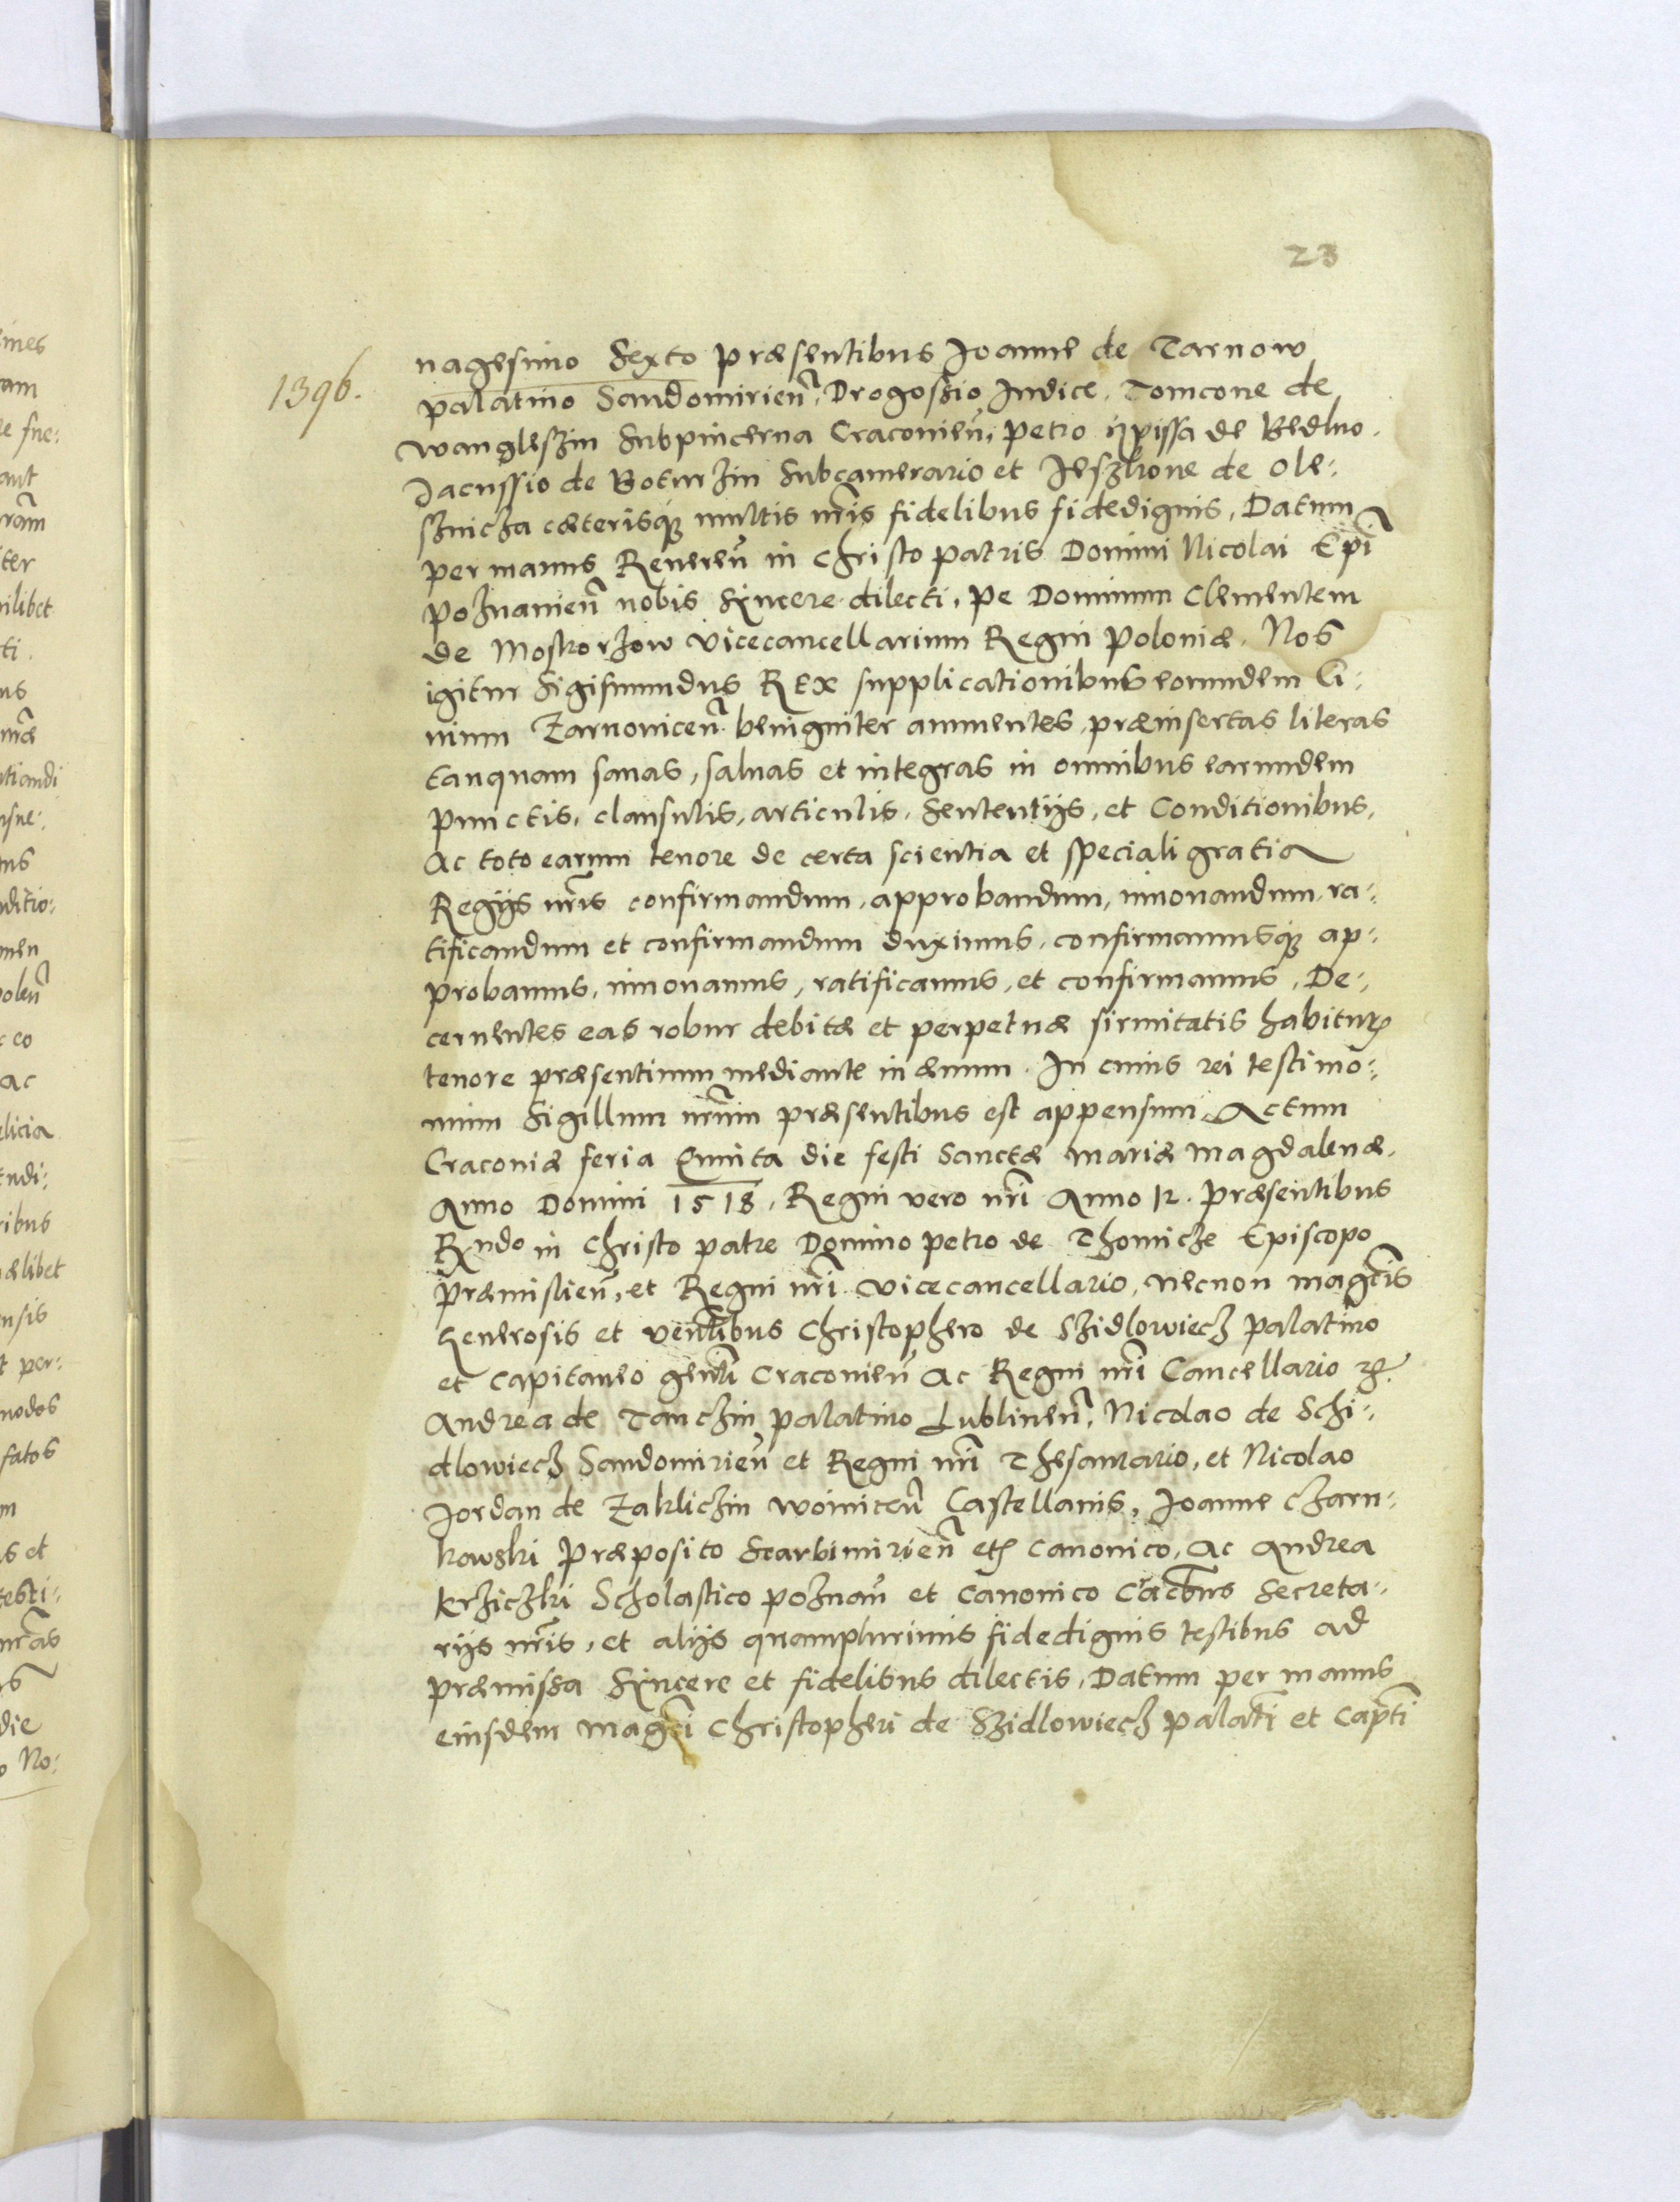 23
1396.
nagesimo Sexto præsentibus Joanne de Tarnow
palatino Sandomirien̄, Drogossio Judice, Tomcone de
wanglessin Subpincerna Cracouien̄, Petro ijpissa de Bedlno.
Dacussio de Boturzin Subcamerario et Jeszkone de Ole:
sznicza cæterisq̃ multis nr̃is fidelibus fidedignis, Datum
per manus Reueren̄ in Christo patris Domini Nicolai Ep̃i
poznanien̄ nobis Syncere dilecti, pe Dominum Clementem
de Moskorzow vicecancellarium Regni Poloniæ. Nos
igitur Sigismundus REX supplicationibus eorundem Ci:
uium Zarnouicen̄ benigniter annuentes, præinsertas literas
tanquam sanas, saluas et integras in omnibus earundem
punctis, clausulis, articulis, Sententijs, et Conditionibus,
Ac toto earum tenore de certa scientia et speciali gratia
Regijs nr̃is confirmandum, approbandum, innouandum, ra:
tificandum et confirmandum duximus, confirmamusq̃ ap:
probamus, innouamus, ratificamus, et confirmamus, De:
cernentes eas robur debitæ et perpetuæ firmitatis habitur̃
tenore præsentium mediante in æuum. In cuius rei testimo:
nium Sigillum nr̃um præsentibus est appensum, Actum
Cracouiæ feria Quinta die festi Sanctæ Mariæ Magdalenæ,
Anno Domini 1518, Regni vero nr̃i Anno 12. Præsentibus
Rx̃ndo in Christo patre Domino Petro de Thomicze Episcopo
præmislien̄, et Regni nr̃i vicecancellario, necnon mag̃cis
Generosis et ven̄tibus Christophero de Szidlowiecz palatino
et Capitaneo gen̄li Cracouien̄ Ac Regni nr̃i Cancellario &c.
Andrea de Tanczin palatino Lublinen̄, Nicolao de Schi:
dlowiecz Sandomirien̄ et Regni nr̃i Thesaurario, et Nicolao
Jordan de Zakliczin woinicen̄ Castellanis, Joanne Czarn:
kowski Præposito Scarbimirien̄ etc̃ Canonico, Ac Andrea
Krziczki Scholastico poznan̄ et Canonico Craco᷑ns Secreta:
rijs nr̃is, et alijs quamplurimis fidedignis testibus ad
præmissa Syncere et fidelibus dilectis, Datum per manus
eiusdem mag̃ci Christopheri de Szidlowiecz palat̃i et Cap̃ti